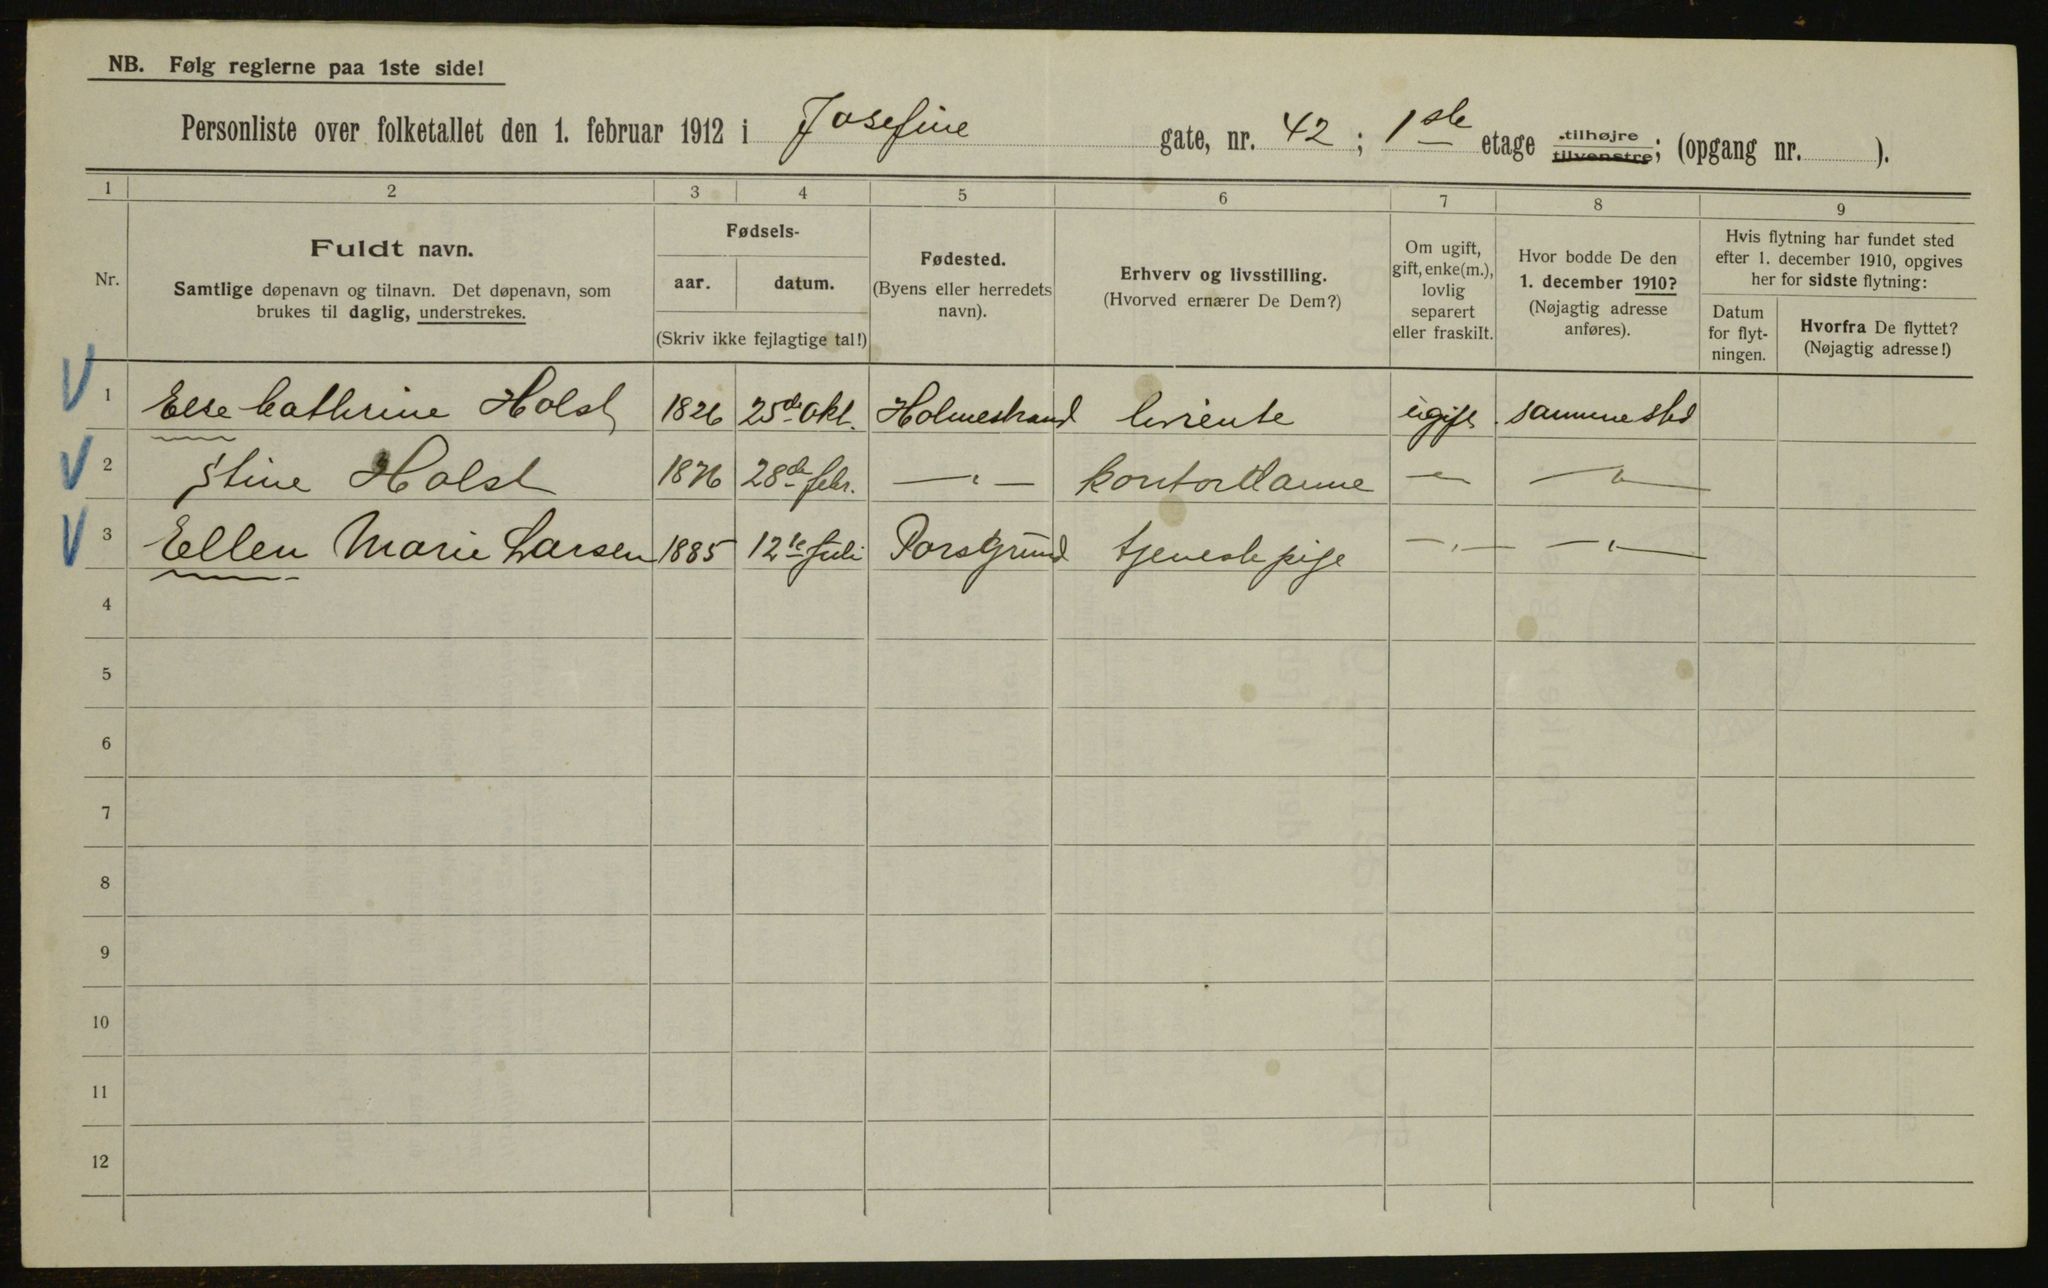 NB. Følg reglerne paa 1ste side!
Personliste over folketallet den 1. februar 1912 i Josefine gate, nr. 42; 1ste etage tilhøjre tilvenstre; (opgang nr. ).
1 2 3 4 5 6 7 8 9
Nr.
Fuldt navn.
Samtlige døpenavn og tilnavn. Det døpenavn, som
brukes til daglig, understrekes.
Fødsels-
aar. datum.
(Skriv ikke fejlagtige tal!)
Fødested.
(Byens eller herredets
navn).
Erhverv og livsstilling.
(Hvorved ernærer De Dem?)
Om ugift,
gift, enke(m.),
lovlig
separert
eller fraskilt.
Hvor bodde De den
1. december 1910?
(Nøjagtig adresse
anføres).
Hvis flytning har fundet sted
efter 1. december 1910, opgives
her for sidste flytning:
Datum
for flyt-
ningen.
Hvorfra De flyttet?
(Nøjagtig adresse!)
1 Else Cathrine Holst 1826 25de okt. Holmestrand livrente ugift sammested
2 Stine Holst 1876 28de febr. —"— kontordame —"— —"—
3 Ellen Marie Larsen 1885 12te Juli Porsgrund tjenestepige —"— —"—
4
5
6
7
8
9
10
11
12